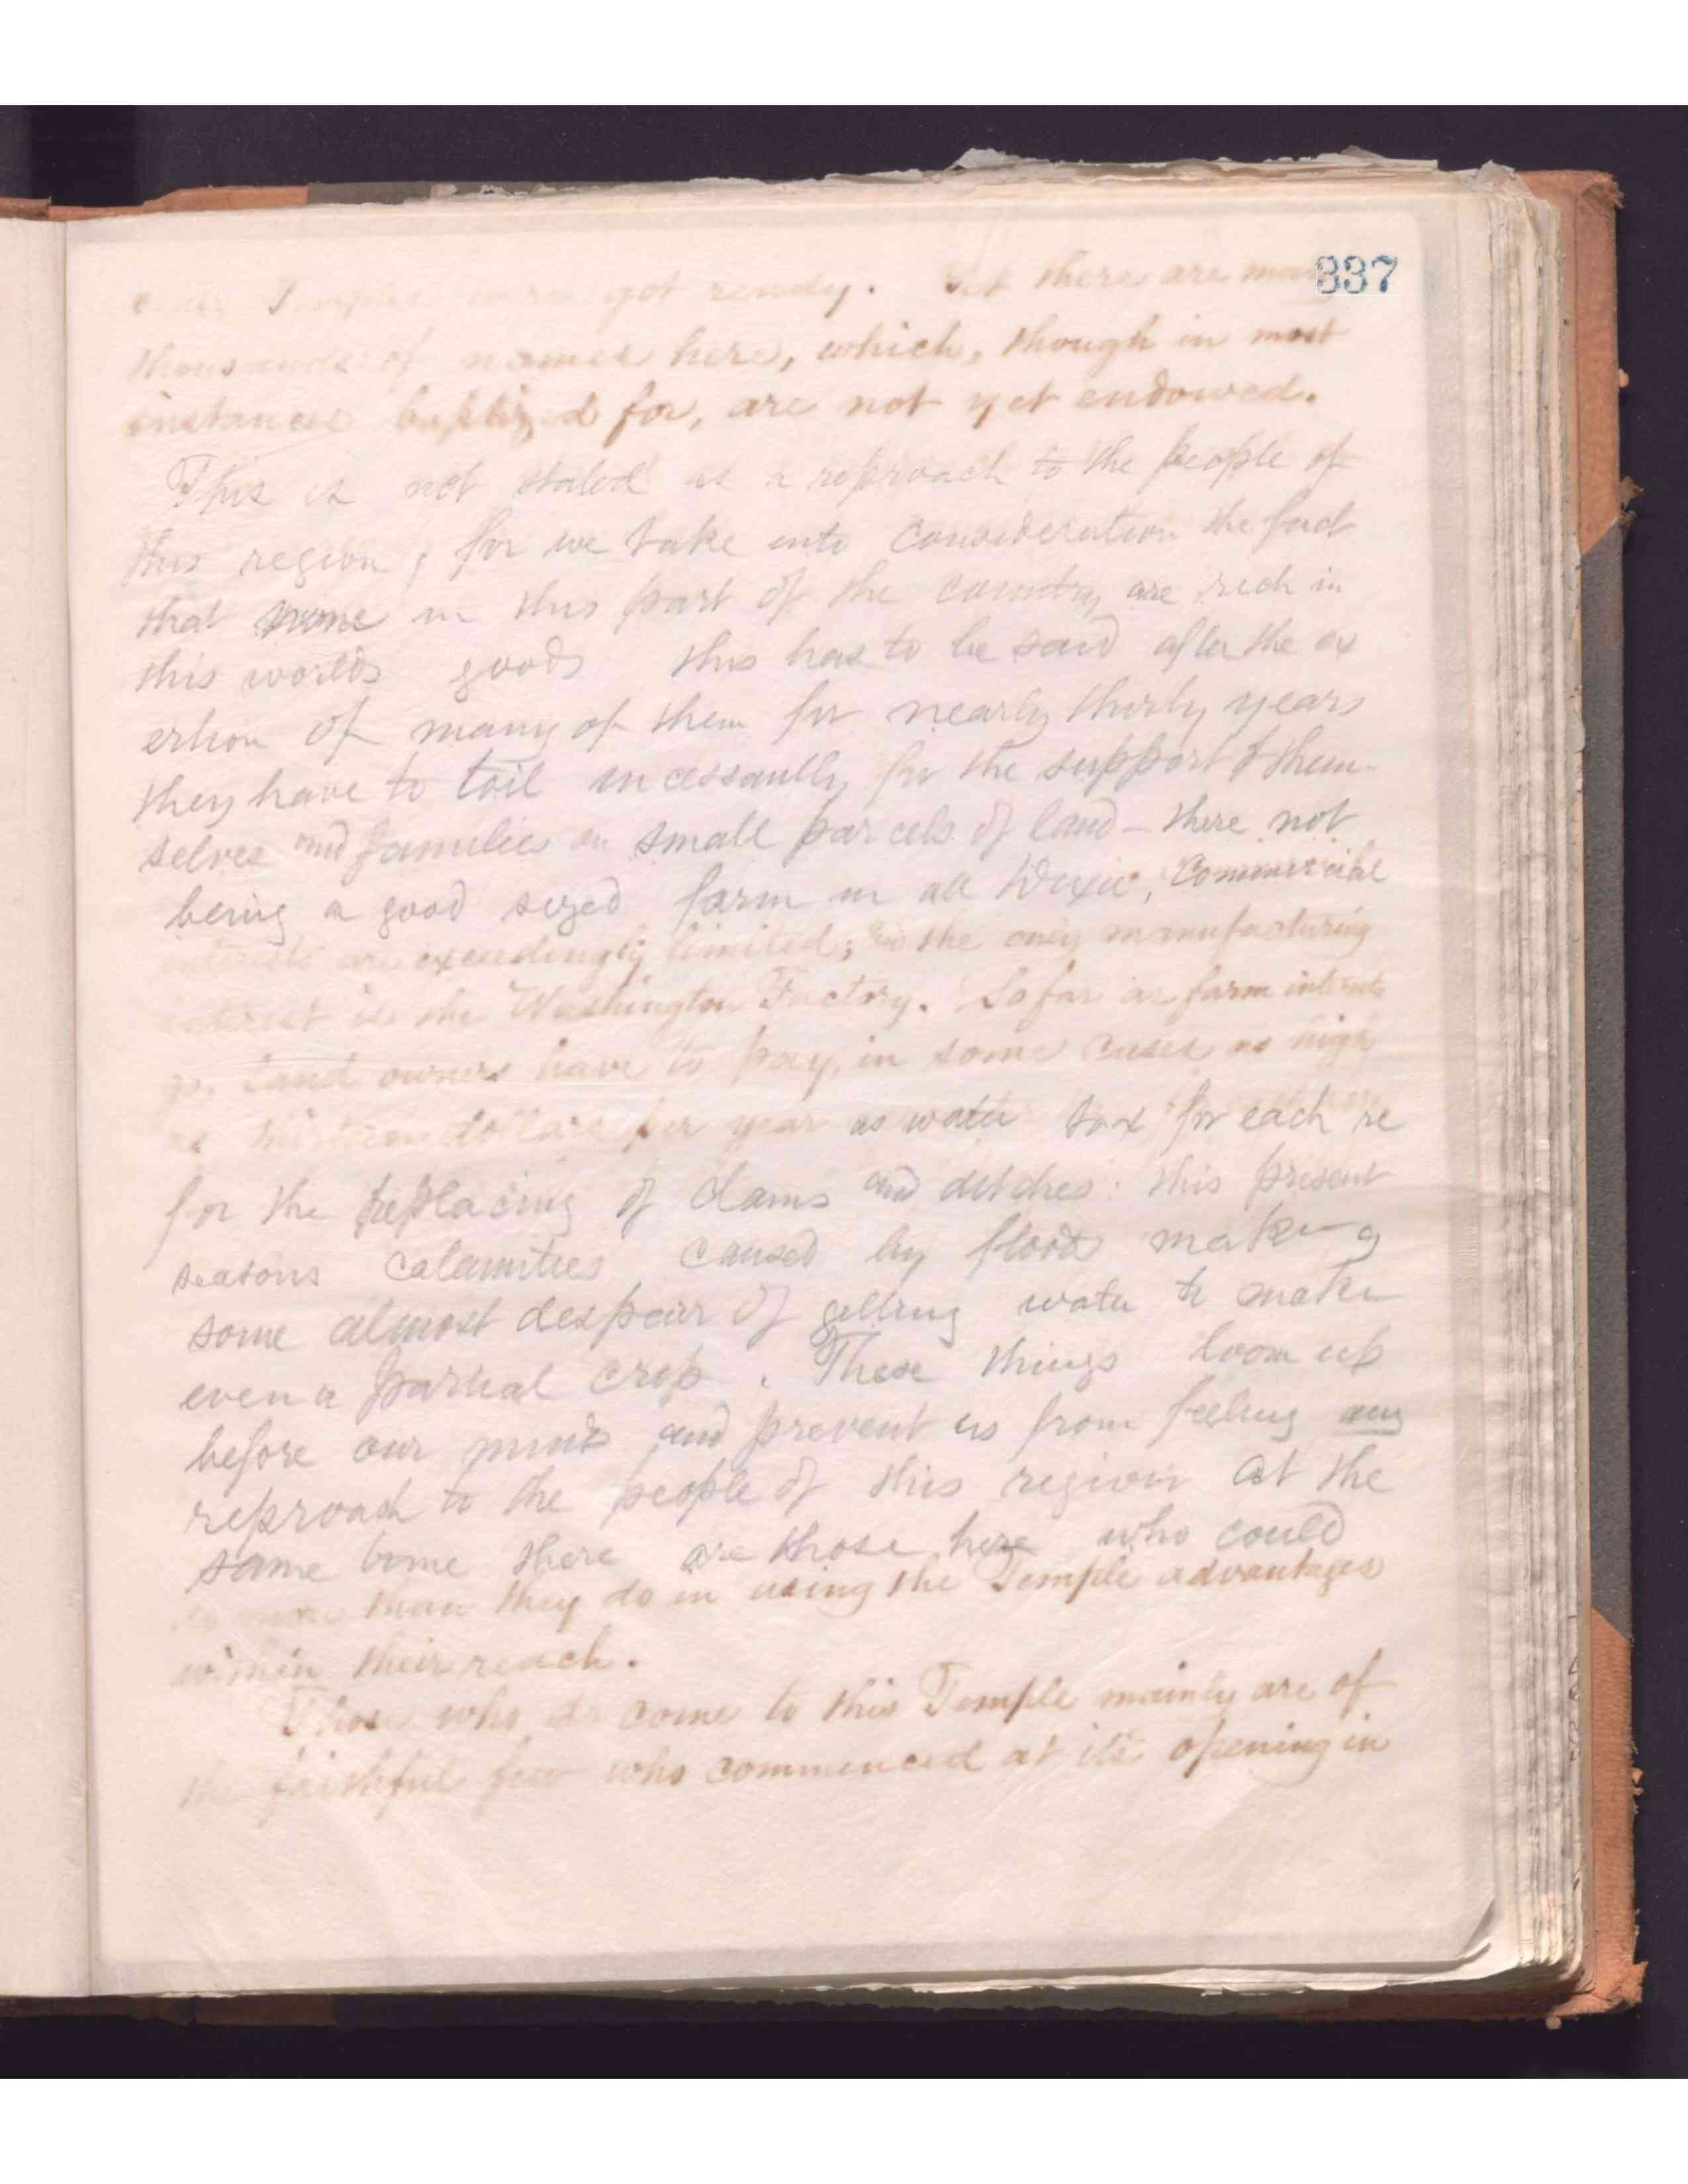 337
Temples were got ready. But there are many
thousands of names here, which, though in most
instances baptized for, are not yet endowed.
This is not stated as a reproach to the people of
this region, for we take into consideration the fact
that none in this part of the country are rich in
this worlds goods this has to be said after the ex
ertion of many of them for nearly thirty years
they have to toil incessantly for the support of them-
selves and families on small parcels of land - there not
being a good sized farm in all Dixie, Commercial
interests are exceedingly limited; and the only manufacturing
interest is the Washington Factory. So far as farm interests
go, land owners have to pay, in some cases as high
as thirteen dollars per year as water tax for each re
for the replacing of dams and ditches: this present
seasons calamities caused by floods making
some almost despair of getting water to make
even a partial crop. These things loom up
before our minds and prevent us from feeling any
reproach to the people of this region at the
same time there are those here who could
do more than they do in using the Temple advantages
within their reach.
Those who do come to this Temple mainly are of
the faithful few who commenced at its opening in